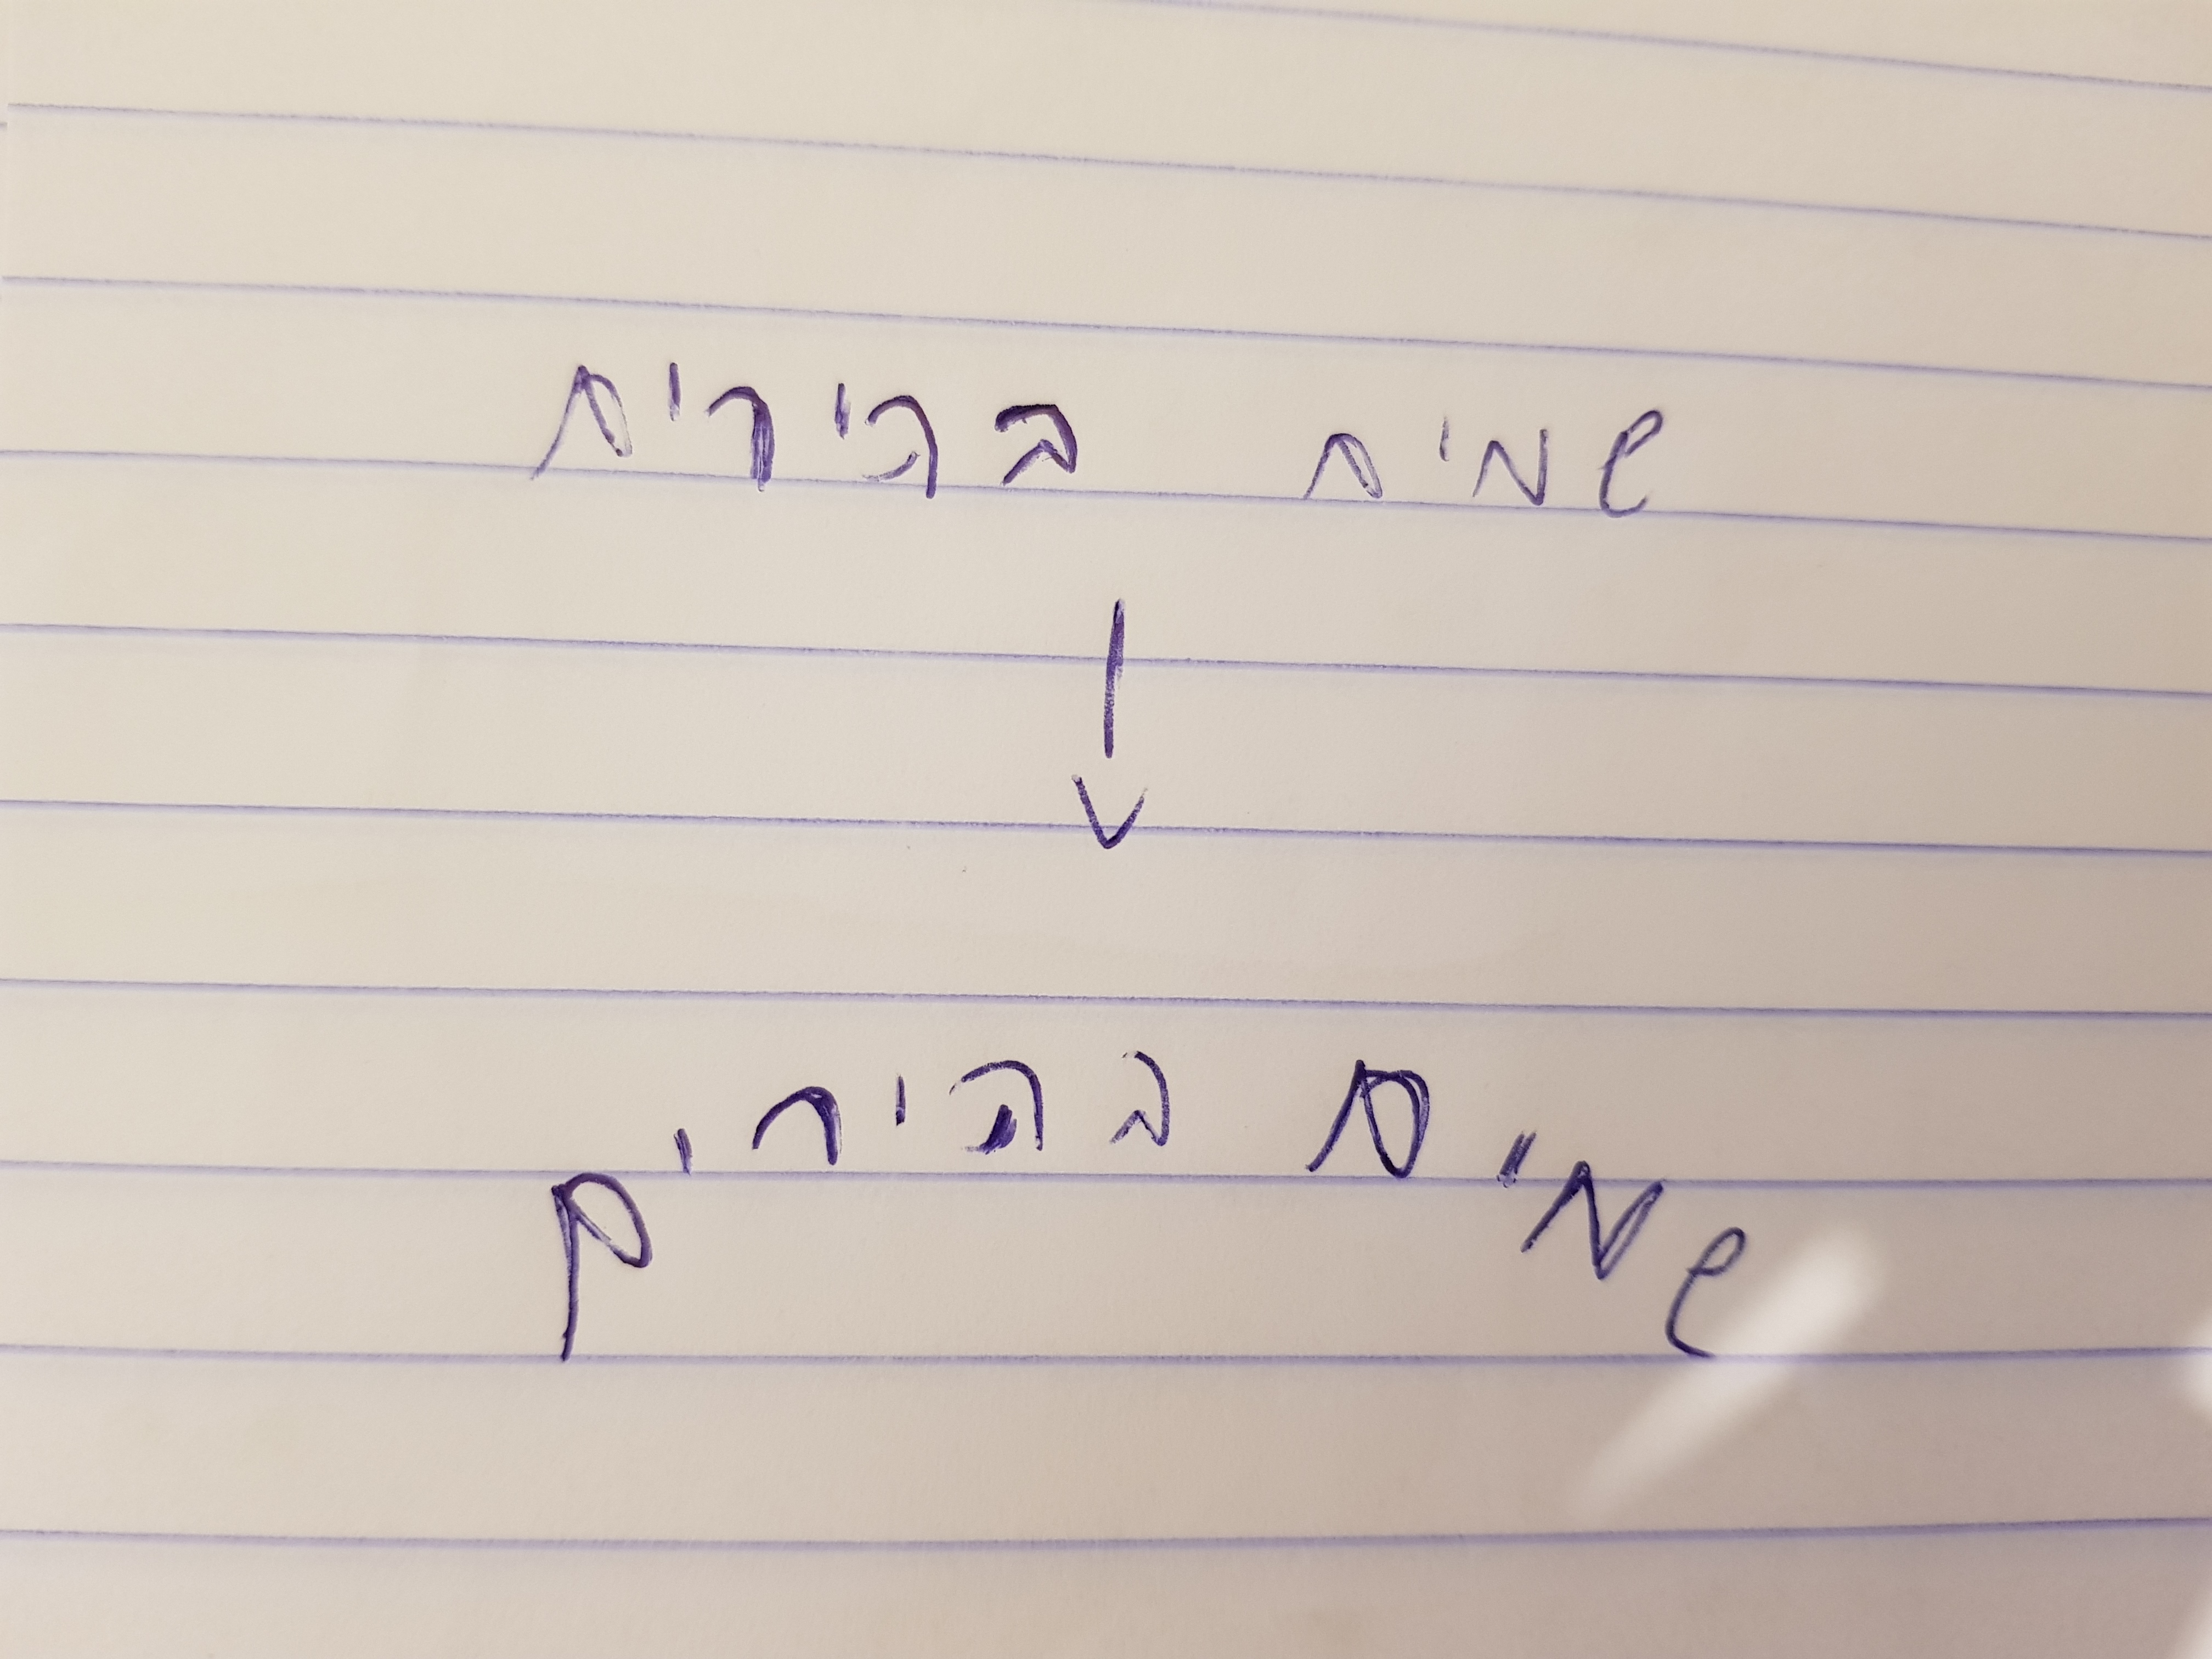 שמים בהירים
שמים בהירים